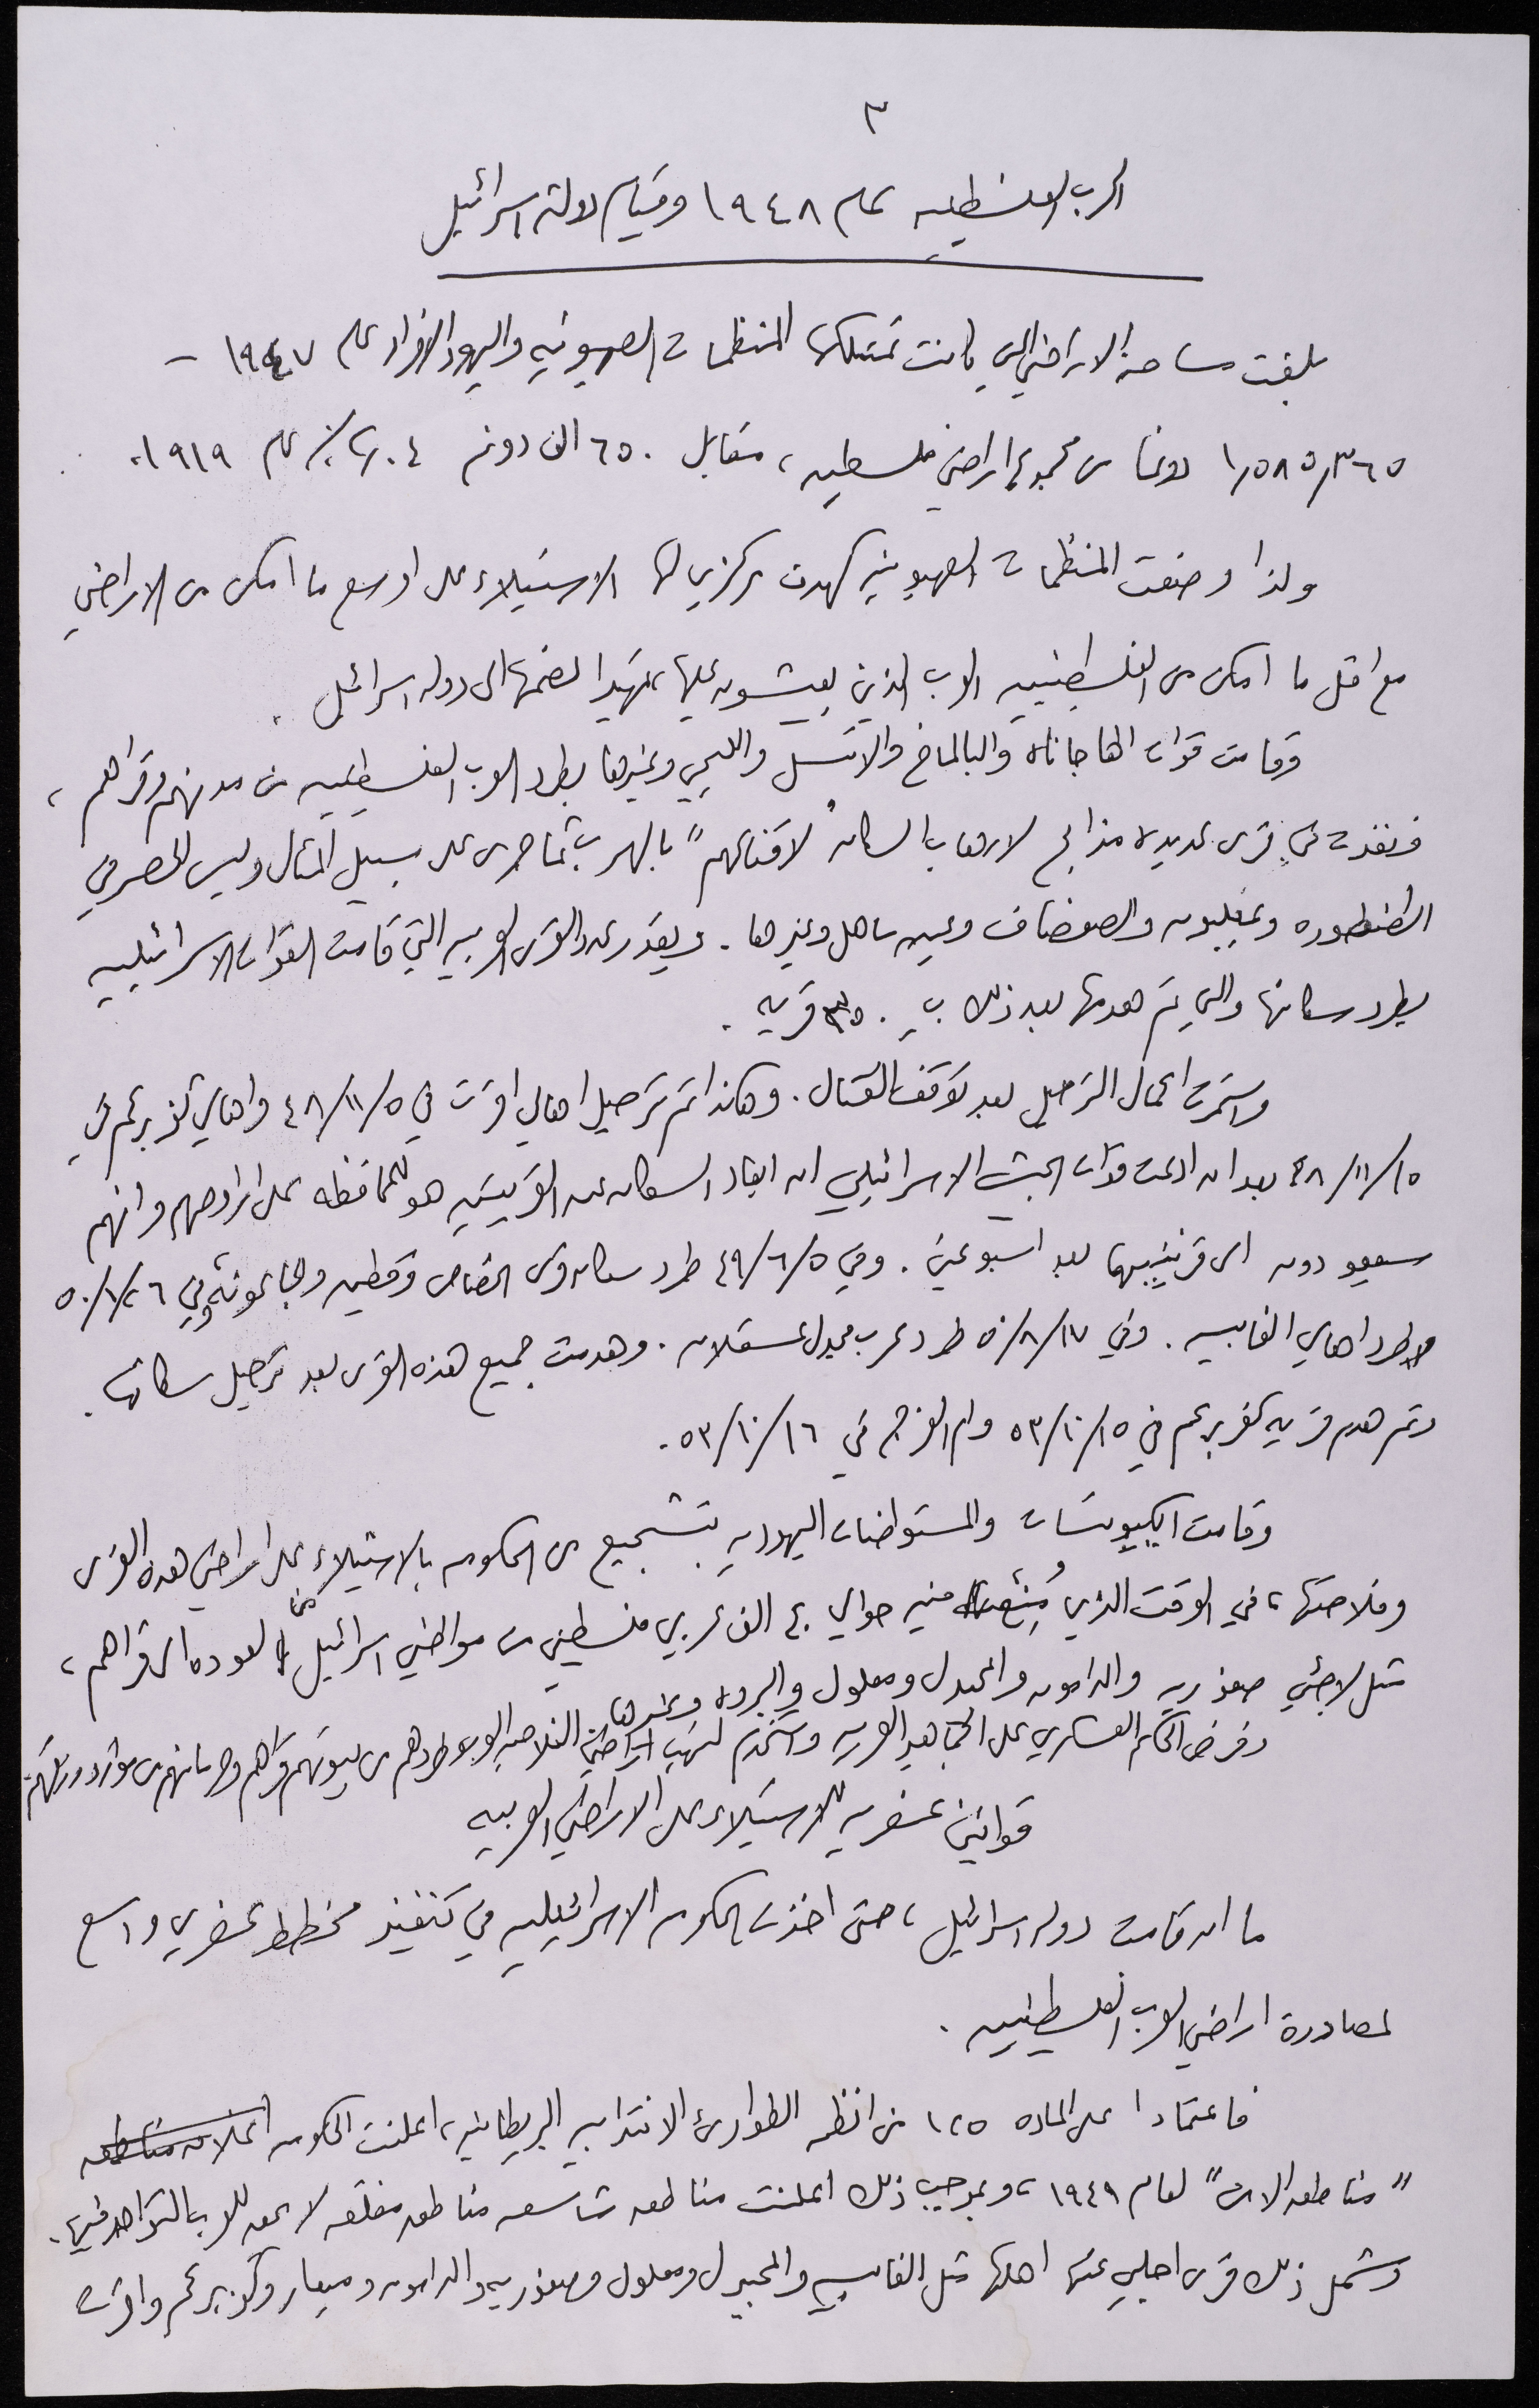 ٣
الحرب الفلسطينيه عام ١٩٤٨ وقيام دولة اسرائيل
بلغت مساحة الاراضي التي كانت تمتلكها المنظمات الصهيونيه واليهود الافراد عام ١٩٤٧ -
١,٥٨٥,٣٦٥ دونما من مجموع اراضي فلسطين، مقابل ٦٥٠ الف دونم ٢.٠٤٪ عام ١٩١٩.
ولذا وضعت المنظمات الصهيونيه كهدف مركزي لها الاستيلاء على اوسع ما امكن من الاراضي
مع اقل ما امكن من الفلسطينيين العرب الذين يعيشون عليها، تمهيدا لضمها الى دولة اسرائيل.
وقامت قوات الهاجاناه والبالماخ والاتسل والليحي وغيرها بطرد العرب الفلسطينيين من مدنهم وقراهم،
ونفذت في قرى عديده مذابح لارهاب السكان "لاقناعهم" بالهرب كما جرى على سبيل المثال وليس الحصر في
الطنطوره وعيلبون والصفصاف وعين ماهل وغيرها. ويقدر عدد القرى العربيه التي قامت القوات الاسرائيليه
بطرد سكانها والتي تم هدمها بعد ذلك بـ ٣٥٠ قريه.
واستمرت اعمال الترحيل بعد توقف القتال. وهكذا تم ترحيل اهالي اقرث في ٤٨/١١/٥ واهالي كفر برعم في
٤٨/١١/١٥ بعد ان ادعت قوات الجيش الاسرائيلي ان ابعاد السكان عن القريتين هو للمحافظه على ارواحهم وانهم
سيعودون الى قريتيهما بعد اسبوعين. وفي ٤٩/٦/٥ طرد سكان قرى الخصاص وقطيه والجاعونه وفي ٥٠/١/٢٦
طرد اهالي الغابسيه. وفي ٥٠/٨/١٧ طرد عرب مجدل عسقلان. وهدمت جميع هذه القرى بعد ترحيل سكانها.
وتم هدم قريه كفر برعم في ٥٣/١٠/١٥ وام الفرج في ٥٣/١٠/١٦.
وقامت الكيبوتسات والمستوطنات اليهوديه بتشجيع من الحكومه بالاستيلاء على اراضي هذه القرى
وفلاحتها، في الوقت الذي مُنع فيه حوالي الف عربي فلسطيني من مواطني اسرائيل من العوده الى قراهم،
مثل لاجئي صفوريه والدامون والمجيدل ومعلول والبروه وغيرها.
وفرض الحكم العسكري على الجماهير العربيه واستخدم لنهب اراضي الفلاحين العرب وطردهم من بيوتهم وقراهم وحرمانهم من موارد رزقهم
قوانين عنصريه للاستيلاء على الاراضي العربيه
ما ان قامت دولة اسرائيل، حتى اخذت الحكومه الاسرائيليه في تنفيذ مخطط عنصري واسع
لمصادرة اراضي العرب الفلسطينيين.
فاعتمادا على الماده ١٢٥ من انظمه الطوارئ الانتدابيه البريطانيه، اعلنت الحكومه اعلان مناطق
"مناطق الامن" لعام ١٩٤٩، وبموجب ذلك اعلنت مناطق شاسعه مناطق مغلقه لا يحق للعرب التواجد فيها.
وشمل ذلك قرى اجلي عنها اهلها مثل الغابسيه والمجيدل ومعلول وصفوريه والدامون وميعار وكفر برعم واقرث